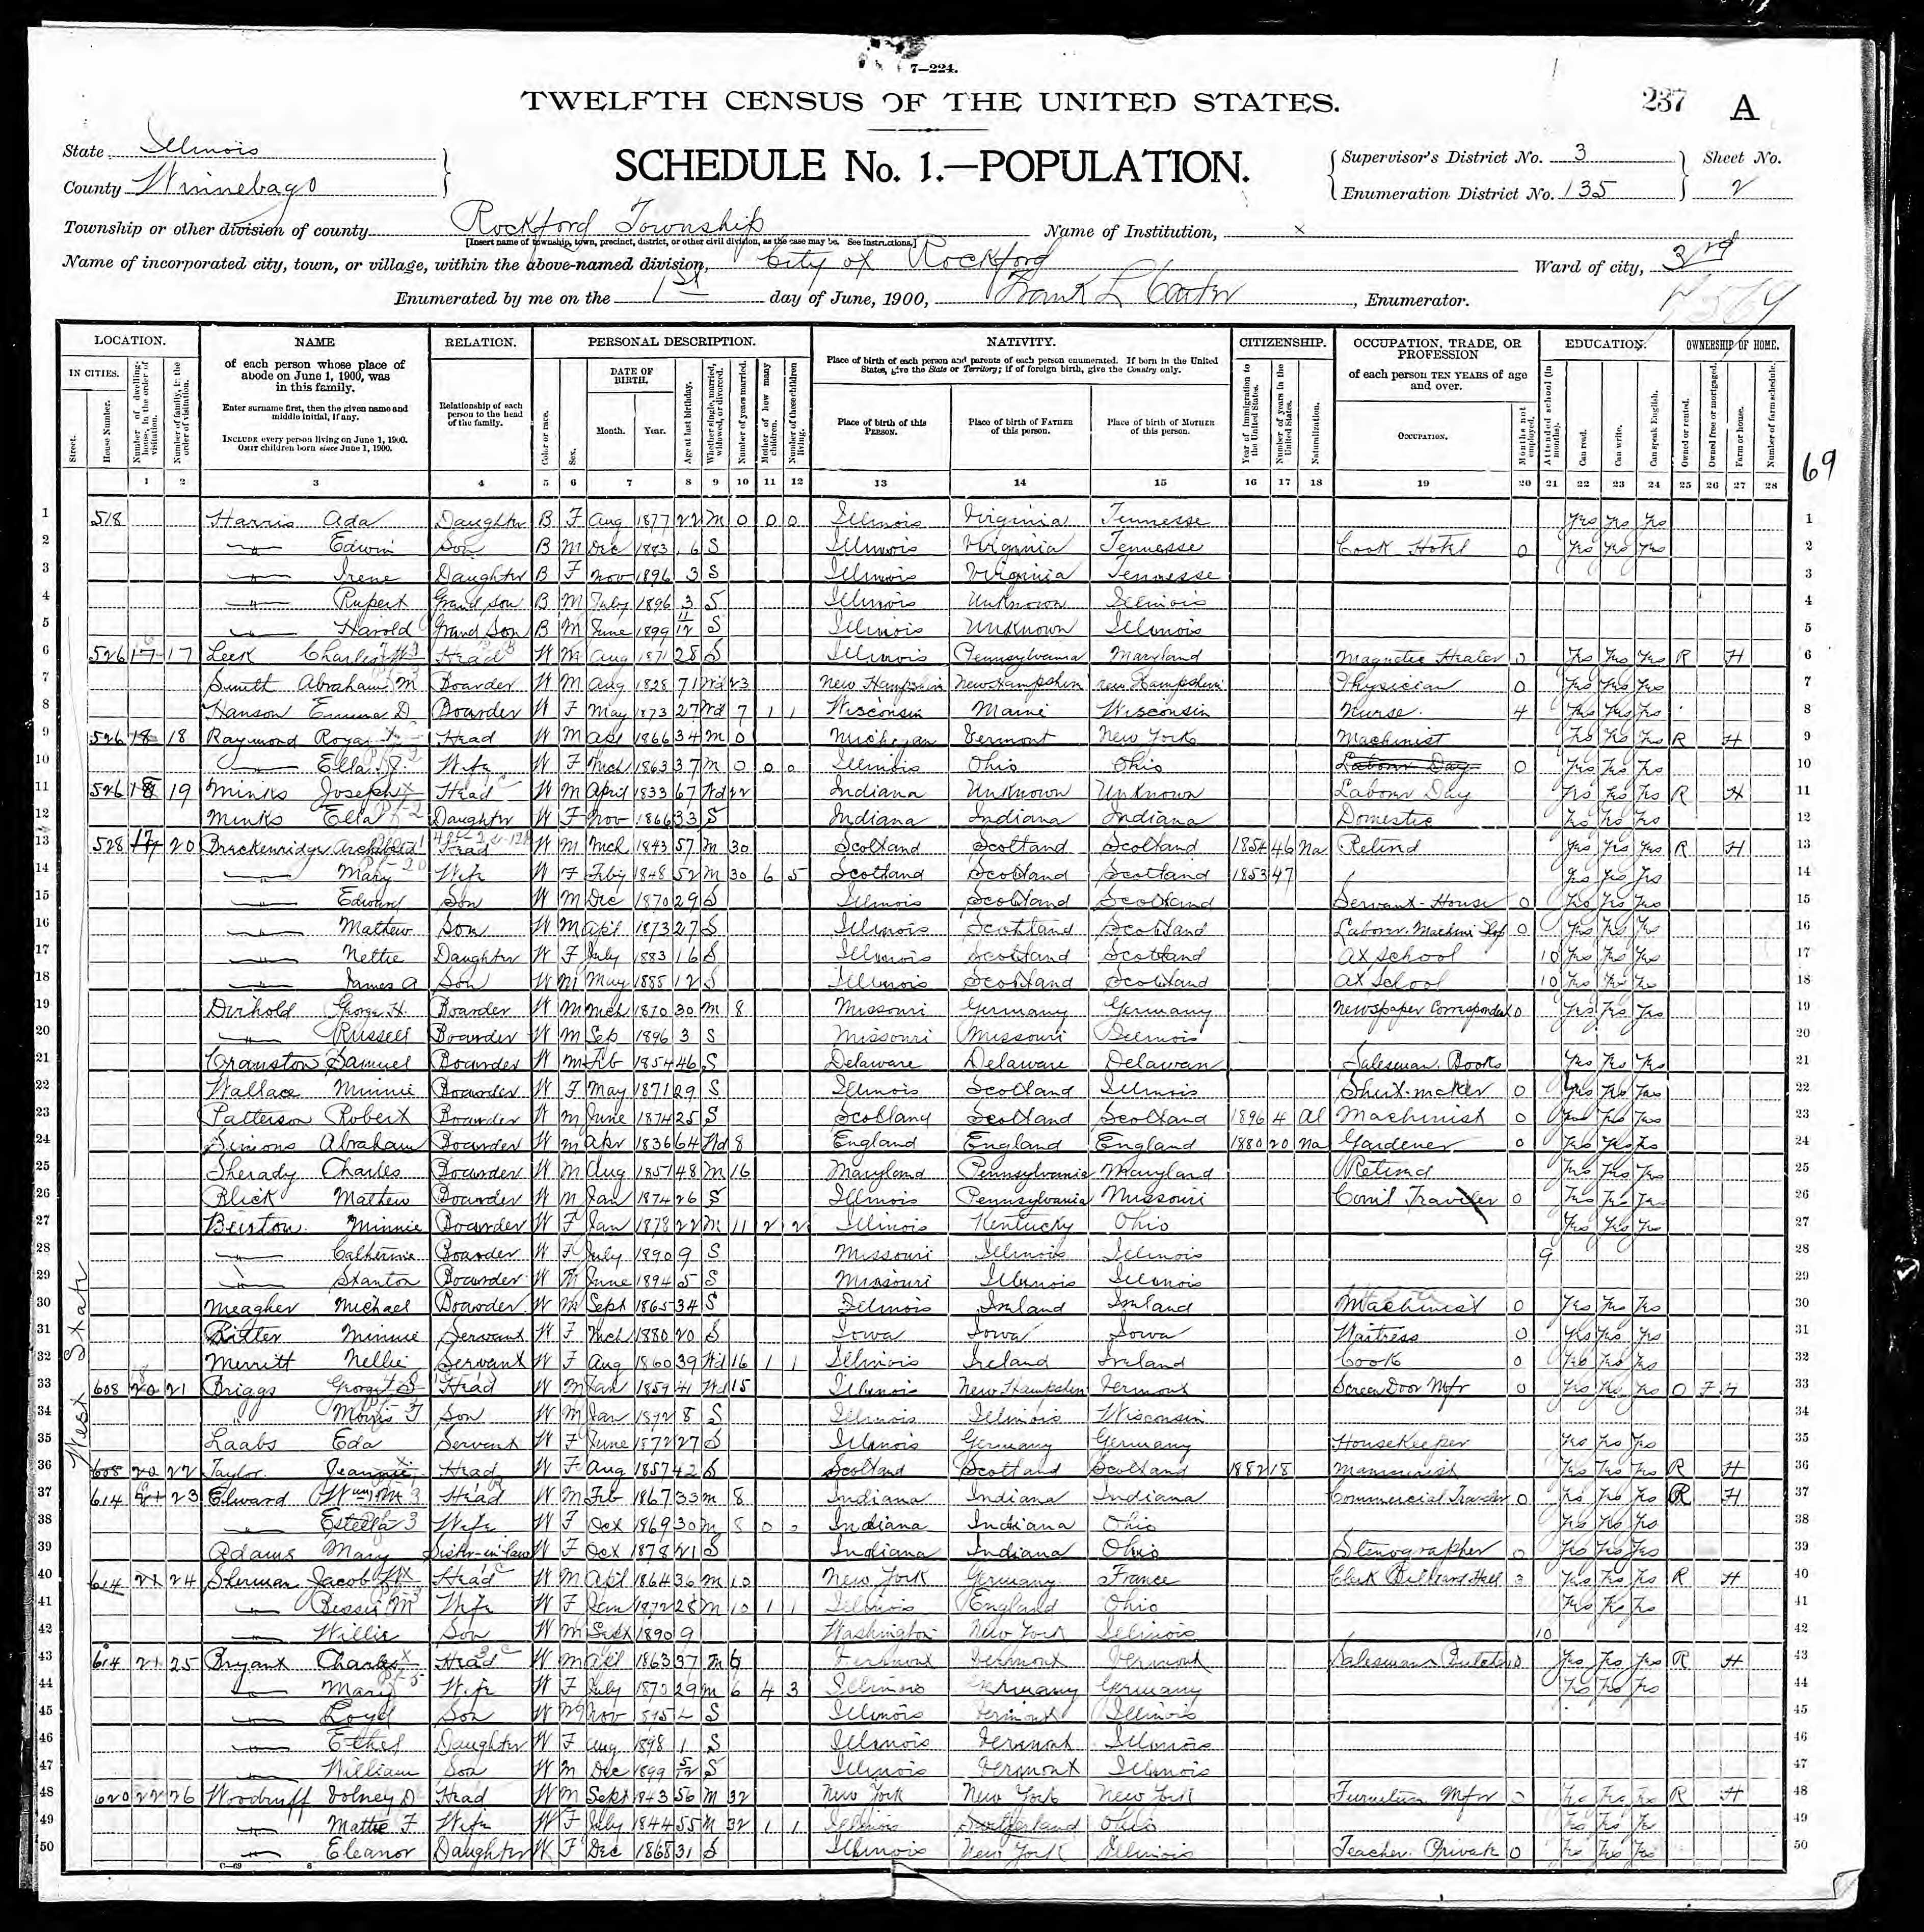 7—224.
TWELFTH CENSUS OF THE UNITED STATES.
237 A
State Illinois
County Winnebago
SCHEDULE No. 1.—POPULATION.
Supervisor's District No. 3
Enumeration District No. 135
Sheet No.
2
Township or other division of county Rockford Township
Name of Institution, x
[Insert name of township, town, precinct, district, or other civil division, as the case may be. See instructions.]
Name of incorporated city, town, or village, within the above-named division, City of Rockford
Ward of city, 3rd
Enumerated by me on the 1st day of June, 1900, Frank L , Enumerator.
LOCATION. NAME RELATION. PERSONAL DESCRIPTION. NATIVITY. CITIZENSHIP. OCCUPATION, TRADE, OR PROFESSION EDUCATION. OWNERSHIP OF HOME.
IN CITIES.
Street.
House Number.
Number of dwelling-house, in the order of visitation.
Number of family, in the order of visitation.
of each person whose place of abode on June 1, 1900, was in this family.
Enter surname first, then the given name and middle initial, if any.
INCLUDE every person living on June 1, 1900.
OMIT children born since June 1, 1900.
Relationship of each person to the head of the family.
Color or race.
Sex.
DATE OF BIRTH.
Month. Year.
Age at last birthday.
Whether single, married, widowed, or divorced.
Number of years married.
Mother of how many children.
Number of these children living.
Place of birth of each person and parents of each person enumerated. If born in the United States, give the State or Territory; if of foreign birth, give the Country only.
Place of birth of this PERSON.
Place of birth of FATHER of this person.
Place of birth of MOTHER of this person.
Year of immigration to the United States.
Number of years in the United States.
Naturalization.
of each person TEN YEARS of age and over.
OCCUPATION.
Months not employed.
Attended school (in months).
Can read.
Can write.
Can speak English.
Owned or rented.
Owned free or mortgaged.
Farm or house.
Number of farm schedule.
69
1 2 3 4 5 6 7 8 9 10 11 12 13 14 15 16 17 18 19 20 21 22 23 24 25 26 27 28
West State
1 518 Harris Ada Daughter B F Aug 1877 22 M 0 0 0 Illinois Virginia Tennesse Yes Yes Yes 1
2 " Edwin Son B M Dec 1883 16 S Illinois Virginia Tennesse Cook Hotel 0 Yes Yes Yes 2
3 " Irene Daughter B F Nov 1896 3 S Illinois Virginia Tennesse 3
4 " Rupert Grand son B M July 1896 3 S Illinois Unknown Illinois 4
5 " Harold Grand Son B M June 1899 11/12 S Illinois Unknown Illinois 5
6 526 17 17 Leek Charles Head W M Aug 1871 28 S Illinois Pennsylvania Maryland Magnetic Healer 0 Yes Yes Yes R H 6
7 Smith Abraham M Boarder W M Aug 1828 71 Wd 23 New Hampshire New Hampshire New Hampshire Physician 0 Yes Yes Yes 7
8 Hanson Emma D Boarder W F May 1873 27 Wd 7 1 1 Wisconsin Maine Wisconsin Nurse 4 Yes Yes Yes 8
9 526 18 18 Raymond Royal Head W M Apl 1866 34 M 0 Michegan Vermont New York Machinist Yes Yes Yes R H 9
10 " Ella Wife W F Mch 1863 37 M 0 0 0 Illinois Ohio Ohio Labour Day 0 Yes Yes Yes 10
11 526 18 19 Minks Joseph Head W M April 1833 67 Wd 22 Indiana Unknown Unknown Labour Day Yes Yes Yes R H 11
12 Minks Ella Daughter W F Nov 1866 33 S Indiana Indiana Indiana Domestic Yes Yes Yes 12
13 528 17 20 Breckenridge Archibald Head W M Mch 1843 57 M 30 Scotland Scotland Scotland 1854 46 Na Retired Yes Yes Yes R H 13
14 " Mary Wife W F Feby 1848 52 M 30 6 5 Scotland Scotland Scotland 1853 47 Yes Yes Yes 14
15 " Edward Son W M Dec 1870 29 S Illinois Scotland Scotland Servant-House 0 Yes Yes Yes 15
16 " Mathew Son W M Apl 1873 27 S Illinois Scotland Scotland Labour. Machine Shop 0 Yes Yes Yes 16
17 " Nettie Daughter W F July 1883 16 S Illinois Scotland Scotland At School 10 Yes Yes Yes 17
18 " James A Son W M May 1885 12 S Illinois Scotland Scotland At School 10 Yes Yes Yes 18
19 Dirhold George H. Boarder W M Mch 1870 30 M 8 Missouri Germany Germany Newspaper Correspondent 0 Yes Yes Yes 19
20 " Russell Boarder W M Sep 1896 3 S Missouri Missouri Illinois 20
21 Cranston Samuel Boarder W M Feb 1854 46 S Delaware Delaware Delawar Salesman. Books Yes Yes Yes 21
22 Wallace Minnie Boarder W F May 1871 29 S Illinois Scotland Illinois Shirt-maker 0 Yes Yes Yes 22
23 Patterson Robert Boarder W M June 1874 25 S Scotland Scotland Scotland 1896 4 Al Machinist 0 Yes Yes Yes 23
24 Simons Abraham Boarder W M Apr 1836 64 Wd 8 England England England 1880 20 Na Gardener 0 Yes Yes Yes 24
25 Sherady Charles Boarder W M Aug 1851 48 M 16 Maryland Pennsylvania Maryland Retired Yes Yes Yes 25
26 Blick Mathew Boarder W M Jan 1874 26 S Illinois Pennsylvania Missouri Coml Traveler 0 Yes Yes Yes 26
27 Minnie Boarder W F Jan 1878 22 M 11 2 2 Illinois Kentucky Ohio Yes Yes Yes 27
28 " Catherine Boarder W F July 1890 9 S Missouri Illinois Illinois 9 28
29 " Stanton Boarder W M June 1894 5 S Missouri Illinois Illinois 29
30 Meagher Michael Boarder W M Sept 1865 34 S Illinois Ireland Ireland Machinist 0 Yes Yes Yes 30
31 Ritter Minnie Servant W F Mch 1880 20 S Iowa Iowa Iowa Waitress 0 Yes Yes Yes 31
32 Merritt Nellie Servant W F Aug 1860 39 Wd 16 1 1 Illinois Ireland Ireland Cook 0 Yes Yes Yes 32
33 608 20 21 Briggs George S Head W M Jan 1859 41 Wd 15 Illinois New Hampshire Vermont Screen Door Mfr 0 Yes Yes Yes O F H 33
34 " Morris F Son W M Jan 1892 8 S Illinois Illinois Wisconsin 34
35 Laabs Eda Servant W F June 1872 27 S Illinois Germany Germany Housekeeper Yes Yes Yes 35
36 608 20 22 Taylor Jeannie Head W F Aug 1857 42 S Scotland Scotland Scotland 1882 18 Yes Yes Yes R H 36
37 614 21 23 Elward Wm M Head W M Feb 1867 33 M 8 Indiana Indiana Indiana Commercial Traveler 0 Yes Yes Yes R H 37
38 " Estella Wife W F Oct 1869 30 M 8 0 0 Indiana Indiana Ohio Yes Yes Yes 38
39 Adams Mary Sister-in-law W F Oct 1878 21 S Indiana Indiana Ohio Stenographer 0 Yes Yes Yes 39
40 614 21 24 Sherman Jacob Head W M Apl 1864 36 M 10 New York Germany France Clerk Billiard Hall 3 Yes Yes Yes R H 40
41 " Bessie M Wife W F Jan 1872 28 M 10 1 1 Illinois England Ohio Yes Yes Yes 41
42 " Willie Son W M Sept 1890 9 Washington New York Illinois 10 42
43 614 21 25 Bryant Charles Head W M Apl 1863 37 M 6 Vermont Vermont Vermont Salesman Butcher 0 Yes Yes Yes R H 43
44 " Mary Wife W F July 1870 29 M 6 4 3 Illinois Germany Germany Yes Yes Yes 44
45 " Loyd Son W M Nov 1895 4 S Illinois Vermont Illinois 45
46 " Ethel Daughter W F Aug 1898 1 S Illinois Vermont Illinois 46
47 " William Son W M Dec 1899 5/12 S Illinois Vermont Illinois 47
48 620 22 26 Woodruff Volney D Head W M Sept 1843 56 M 32 New York New York New York Furniture Mfr 0 Yes Yes Yes R H 48
49 " Mattie F Wife W F July 1844 55 M 32 1 1 Illinois Switzerland Ohio Yes Yes Yes 49
50 " Eleanor Daughter W F Dec 1868 31 S Illinois New York Illinois Teacher. Private 0 Yes Yes Yes 50